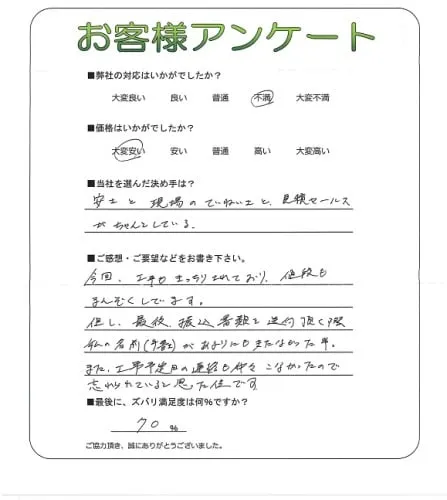 お客様アンケート
■弊社の対応はいかがでしたか？
大変良い　良い　普通　不満　大変不満
■価格はいかがでしたか？
大変安い　安い　普通　高い　大変高い
■当社を選んだ決め手は？
安さと現場のていねいさと、見積セールス
がちゃんとしている。
■ご感想・ご要望などをお書き下さい。
今回、工事もきっちりされており、値段も
まんぞくしてます。
但し、最後、振込書類を送付頂く際
私の名前(字数)があまりにもきたなかった事。
また、工事予定日の連絡も中々こなかったので
忘れられていると思った位です
■最後に、ズバリ満足度は何%ですか？
70 %
ご協力頂き、誠にありがとうございました。